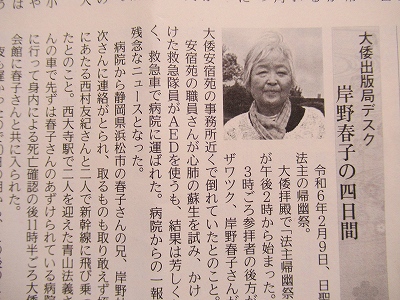 大倭出版局デスク
岸野春子の四日間
令和6年2月9日、日聖
法主の帰幽祭。
大倭拝殿で「法主帰幽祭
が午後2時から始まった。
3時ごろ参拝者の後方が
ザワツク、岸野春子さんが
大倭安宿苑の事務所近くで倒れていたとのこと。
安宿苑の職員さんが心肺の蘇生を試み、かけ
けた救急隊員がAEDを使うも、結果は芳しく
く、救急車で病院に運ばれた。病院からの一報
残念なニュースとなった。
病院から静岡県浜松市の春子さんの兄、岸野
次さんに連絡がとられ、取るものも取り敢えず
にあたる西村友紀さんと二人で新幹線に飛び乗っ
たとのこと。西大寺駅で二人を迎えた青山法義さ
んの車で先ずは春子さんのあずけられている病院
に行って身内による死亡確認の後11時半ごろ大倭
会館に春子さんと共に入られた。